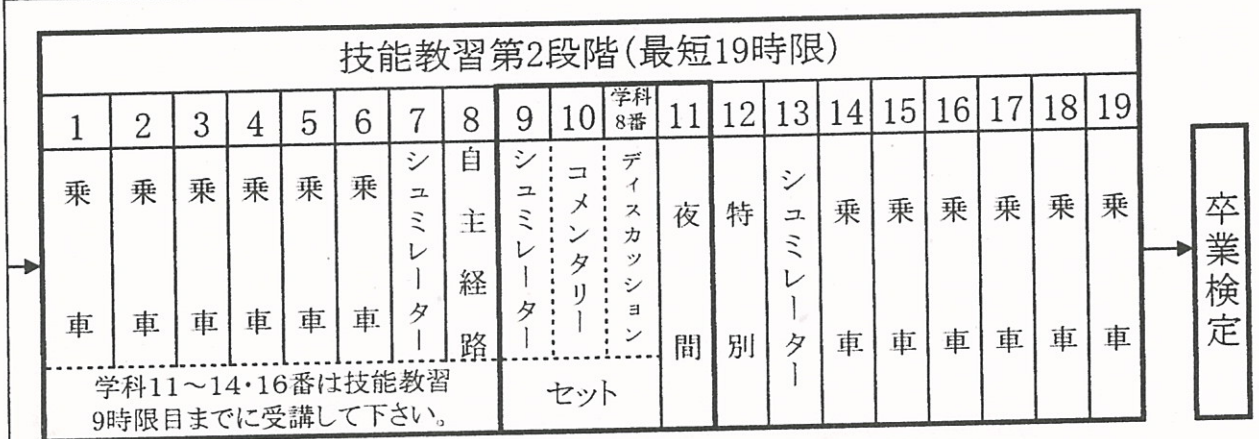 技能教習第2段階(最短19時限)
1 2 3 4 5 6 7 8 9 10 学科8番 11 12 13 14 15 16 17 18 19
乗車
乗車
乗車
乗車
乗車
乗車
シュミレーター
自主経路
シュミレーター
コメンタリー
ディスカッション
夜間
特別
シュミレーター
乗車
乗車
乗車
乗車
乗車
乗車
学科11～14・16番は技能教習
9時限目までに受講して下さい。
セット
卒業検定